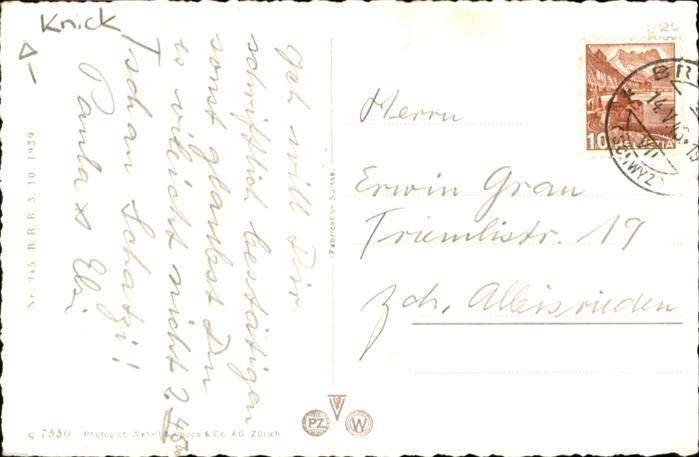 Knick
Ich will Dir
schriftlich bestätigen
sonst glaubst Du
es vileicht nicht?
Tschau Schatzi!
Paula x Elsi
Herrn
Erwin Grau
Triemlistr. 19
Zch. Albisrieden
10
HELVETIA
14.V.
(SCHWYZ)
Nr. 945 B.R.B. 3. 10. 1939
Fabrication Suisse
PZ
W
7550 Photoglob-Wehrli & Vouga & Co. AG. Zürich